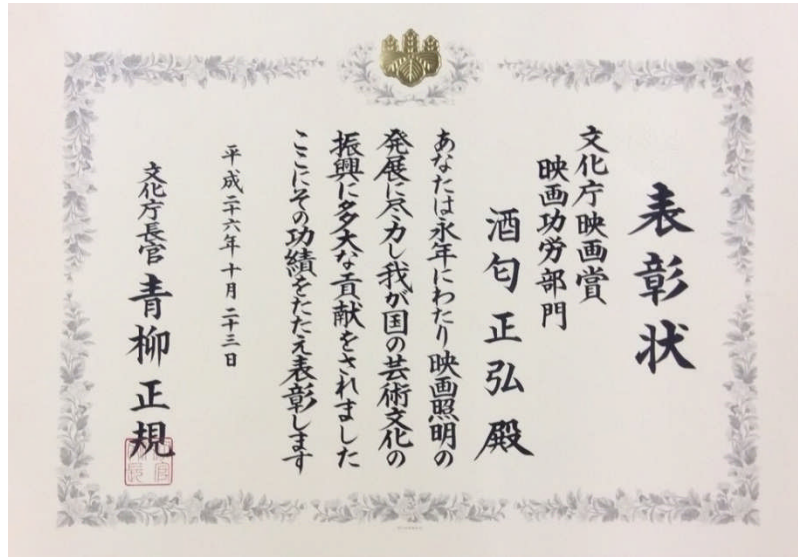 表彰状
文化庁映画賞
映画功労部門
酒匂正弘殿
あなたは永年にわたり映画照明の
発展に尽力し我が国の芸術文化の
振興に多大な貢献をされました
ここにその功績をたたえ表彰します
平成二十六年十月二十三日
文化庁長官 青柳正規